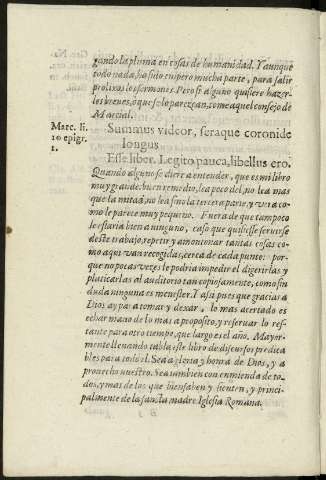 gando la pluma en cosas de humanidad. Y aunque
todo nada, ha sido empero mucha parte, para salir
prolixos los sermones. Pero si alguno quisiere hazer-
los breues, ò que se lo parezcan, tome aquel consejo de
Marcial.
Marc. li.
10 epigr.
1.
Summus videor, seraque coronide
longus
Esse liber. Legito pauca, libellus ero.
Quando alguno se diere a entender, que es mi libro
muy grande. buen remedio, lea poco del, no lea mas
que la mitad, no lea sino la tercera parte, y vera co-
mo le parece muy pequeño. Fuera de que tampoco
le estaria bien a ninguno, caso que quisiesse seruirse
deste trabajo, repetir y amontonar tantas cosas co-
mo aqui van recogidas, cerca de cada punto: por-
que no pocas vezes le podria impedir el digerirlas y
platicarlas al auditorio tan copiosamente, como sin
duda ninguna es menester. Y assi pues que gracias a
Dios ay para tomar y dexar, lo mas acertado es
echar mano de lo mas a proposito, y reseruar lo res-
tante para otro tiempo, que largo es el año. Mayor-
mente lleuando tabla, este libro de discursos predica
bles para todo el. Sea a gloria y honra de Dios, y a
prouecho nuestro. Sea tambien con emienda de to-
dos, y mas de los que bien saben y sienten, y princi-
palmente de la sancta madre Iglesia Romana.